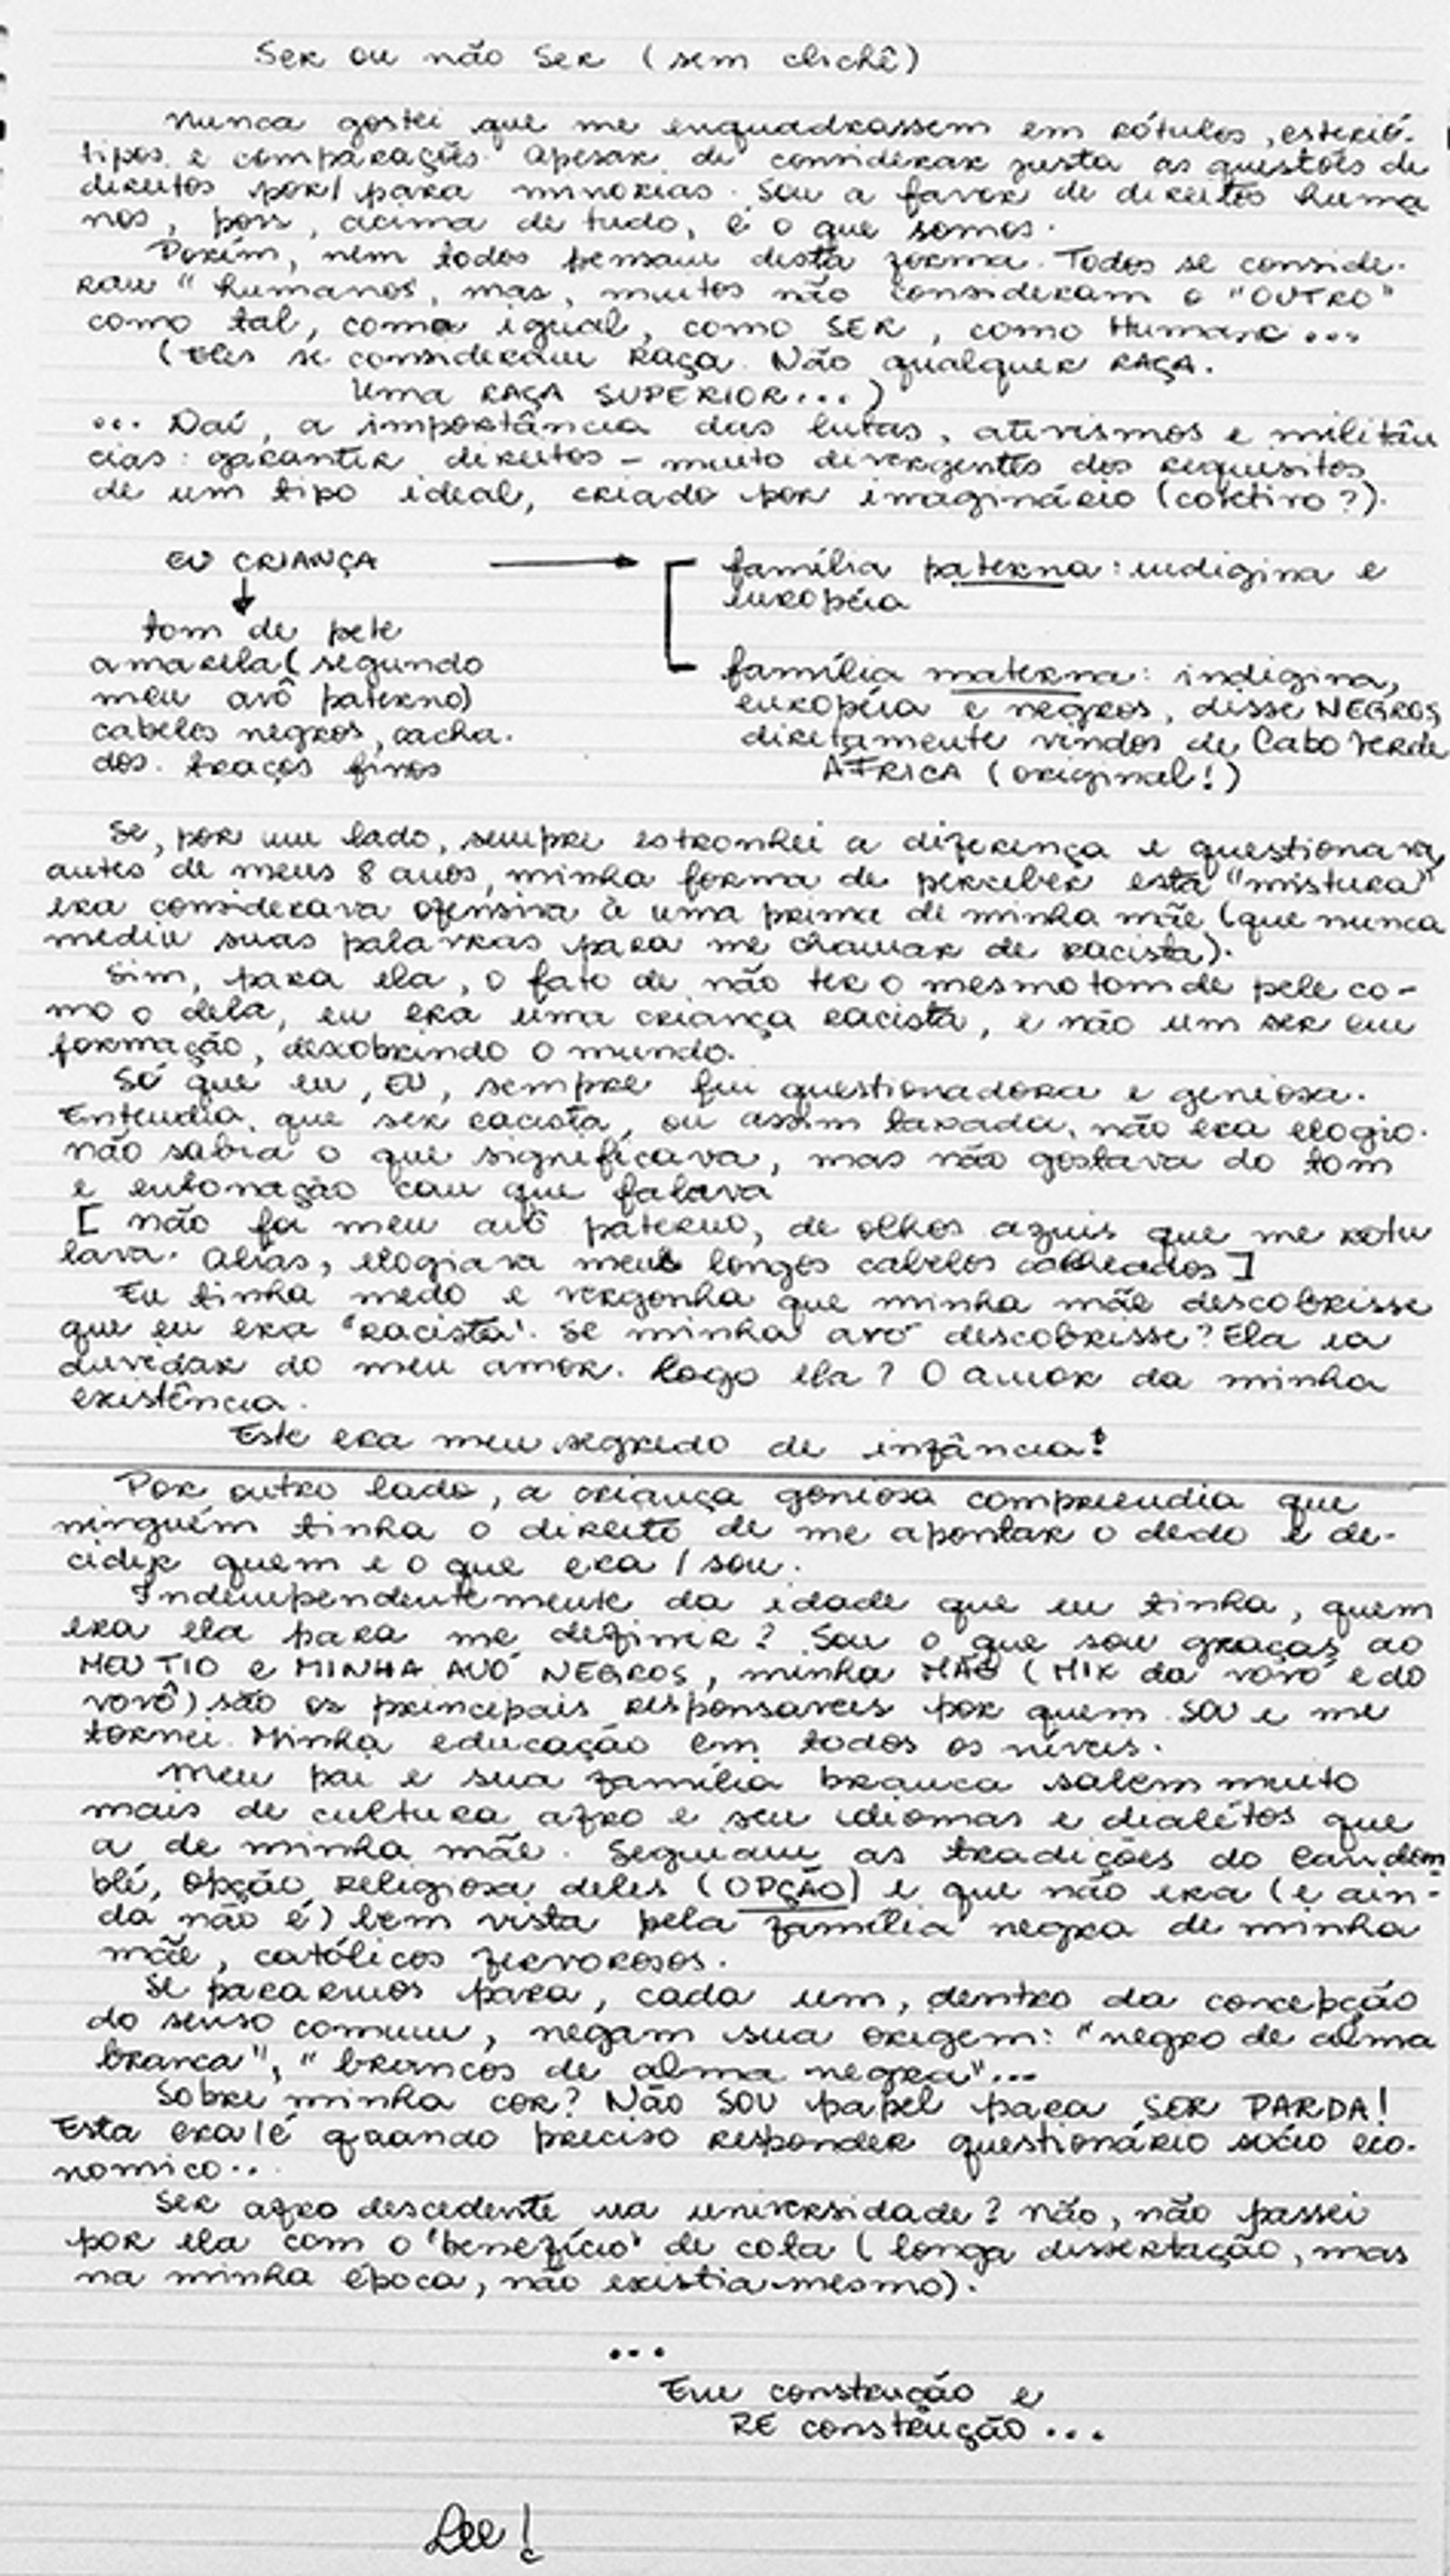 Ser ou não Ser (sem clichê)
Nunca gostei que me enquadrassem em rótulos, esterió-
tipos e comparações. Apesar de considerar justa as questões de
direitos por/para minorias. Sou a favor de direitos huma
nos, pois, acima de tudo, é o que somos.
Porém, nem todos pensam desta forma. Todos se conside-
ram "humanos", mas, muitos não consideram o "OUTRO"
como tal, como igual, como SER, como Humano...
(Eles se consideram RAÇA. Não qualquer RAÇA.
Uma RAÇA SUPERIOR...)
... Daí, a importância das lutas, ativismos e militân
cias: garantir direitos - muito divergentes dos requisitos
de um tipo ideal, criado por imaginário (coletivo?).
EU CRIANÇA
tom de pele
amarela (segundo
meu avô paterno)
cabelos negros, cacha-
dos. traços finos
família paterna: indígina e
européia
família materna: indígina,
européia e negros, disse NEGROS,
diretamente vindos de Cabo Verde
ÁFRICA (original!)
Se, por um lado, sempre estranhei a diferença e questionava,
antes de meus 8 anos, minha forma de perceber esta "mistura"
era considerava ofensiva à uma prima de minha mãe (que nunca
mediu suas palavras para me chamar de racista).
Sim, para ela, o fato de não ter o mesmo tom de pele co-
mo o dela, eu era uma criança racista, e não um ser em
formação, descobrindo o mundo.
Só que eu, EU, sempre fui questionadora e geniosa.
Entendia, que ser racista, ou assim taxada, não era elogio.
não sabia o que significava, mas não gostava do tom
e entonação com que falava
[não foi meu avô paterno, de olhos azuis que me rotu
lava. Aliás, elogiava meus longos cabelos cacheados]
Eu tinha medo e vergonha que minha mãe descobrisse
que eu era 'racista'. Se minha avó descobrisse? Ela ia
duvidar do meu amor. Logo ela? O amor da minha
existência.
Este era meu segredo de infância!
Por outro lado, a criança geniosa compreendia que
ninguém tinha o direito de me apontar o dedo e de-
cidir quem e o que era / sou.
Indenpendentemente da idade que eu tinha, quem
era ela para me definir? Sou o que sou graças ao
MEU TIO e MINHA AVÓ NEGROS, minha MÃE (MIX da vovó e do
vovô) são os principais responsaveis por quem SOU e me
tornei. Minha educação em todos os níveis.
Meu pai e sua família branca sabem muito
mais de cultura afro e seu idiomas e dialétos que
a de minha mãe. Seguiam as tradições do Candom
blé, opção religiosa deles (OPÇÃO) e que não era (e ain-
da não é) bem vista pela família negra de minha
mãe, católicos fervorosos.
Se pararmos para, cada um, dentro da concepção
do senso comum, negam sua origem: "negro de alma
branca", "brancos de alma negra"...
Sobre minha cor? Não SOU papel para SER PARDA!
Esta era/é quando preciso responder questionário socio eco-
nomico...
Ser afro descedente na universidade? não, não passei
por ela com o 'benefício' de cota (longa dissertação, mas
na minha época, não existia mesmo).
...
Em construção e
RE construção...
Lee!